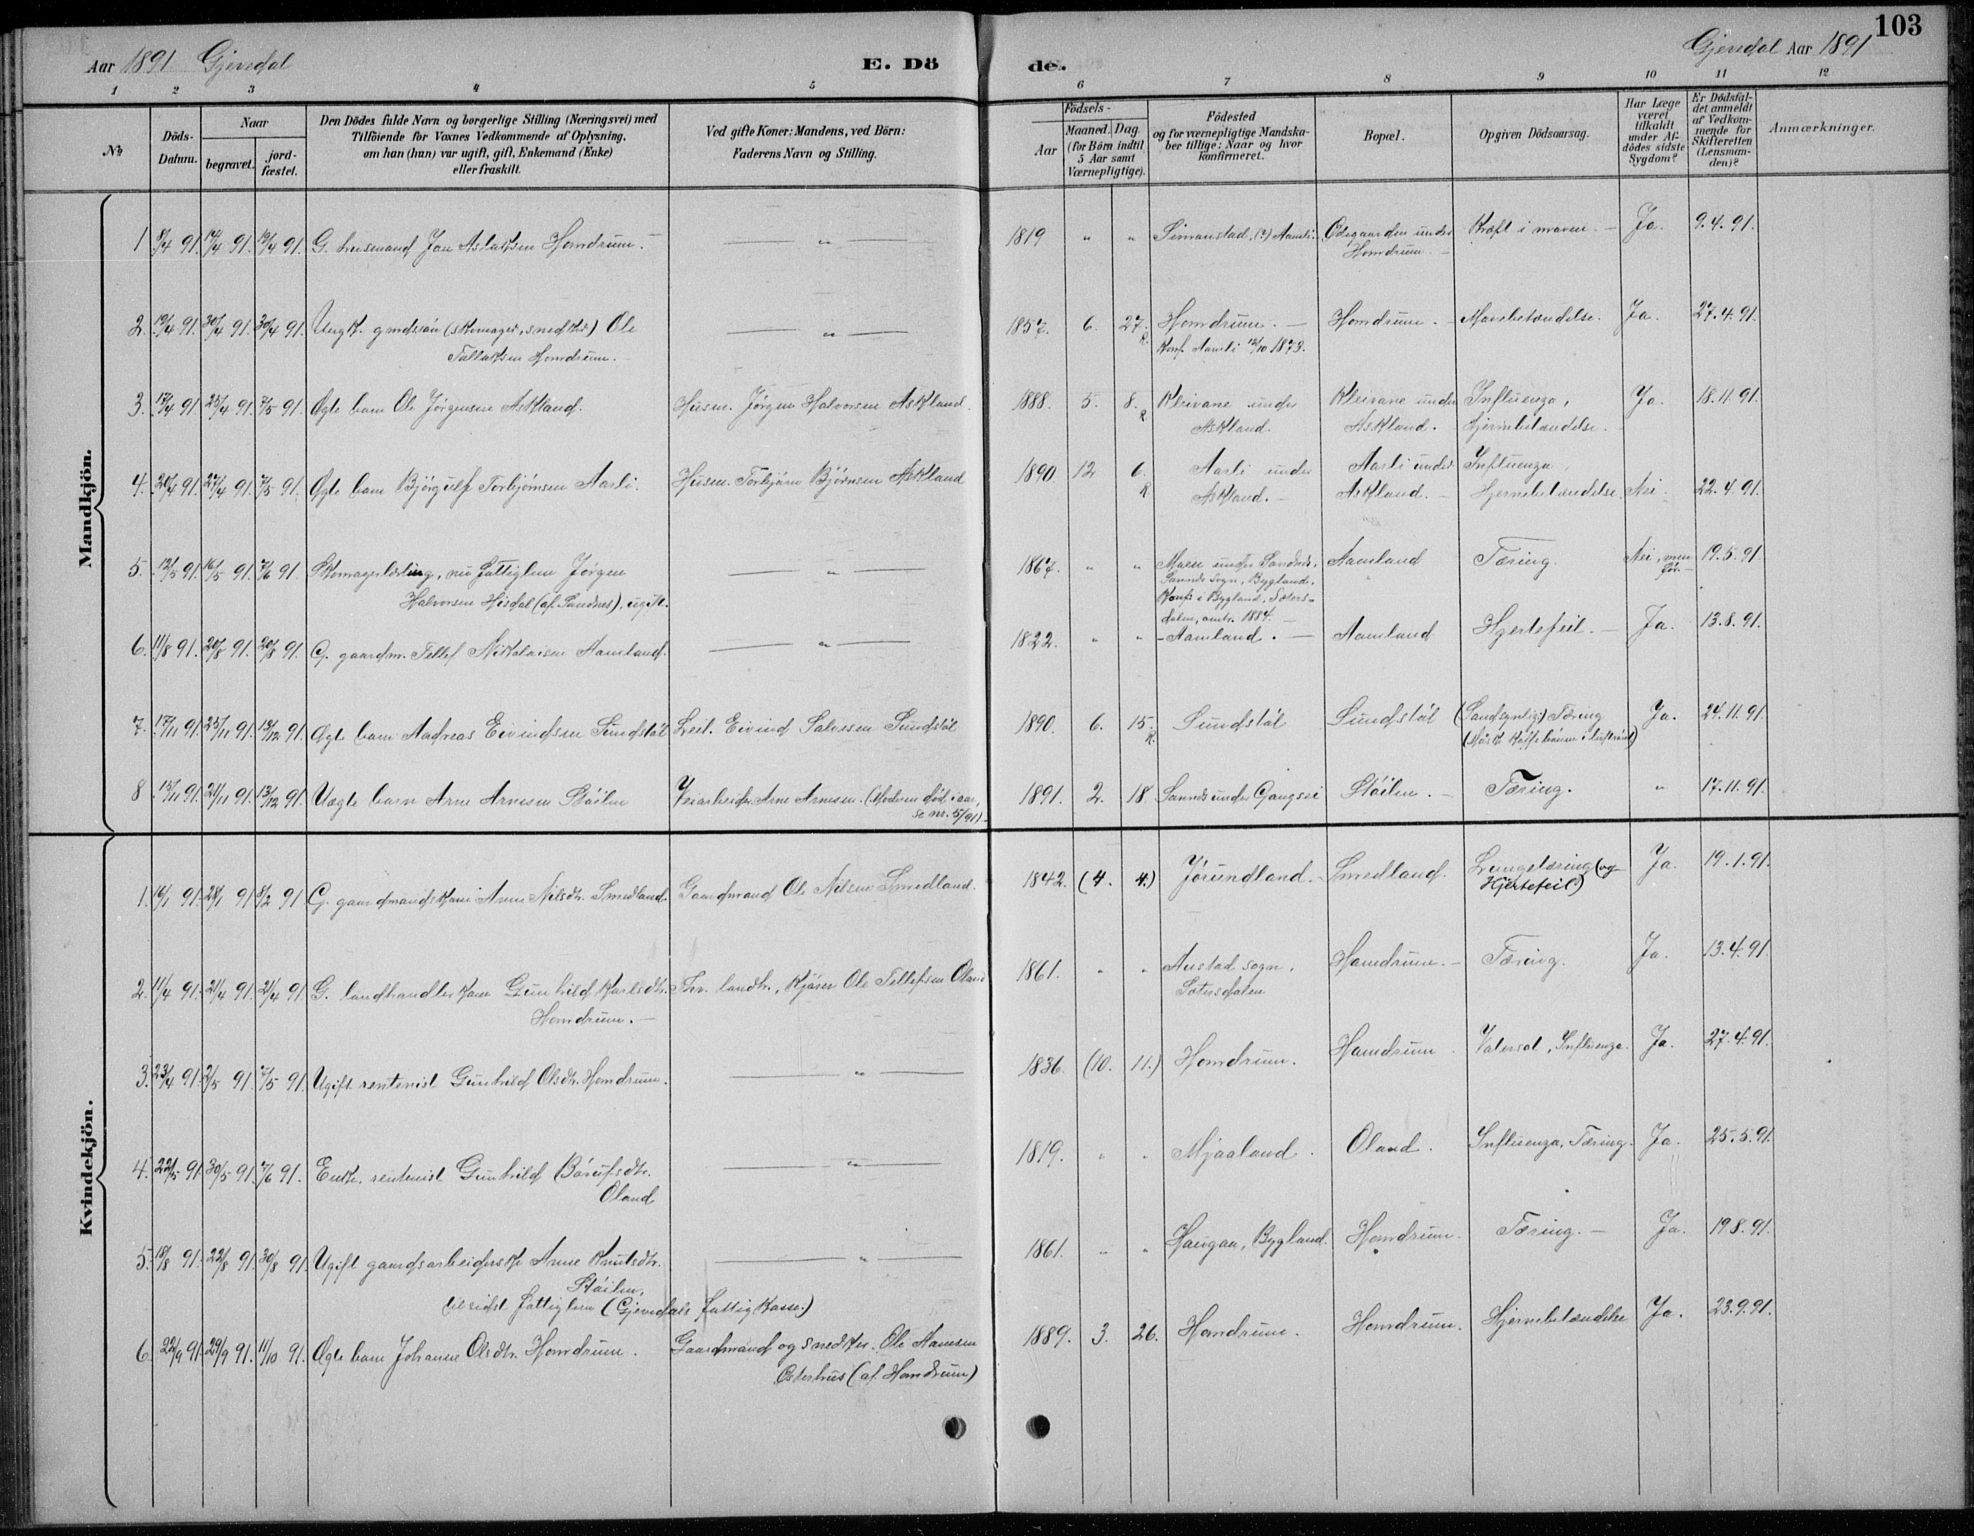 103
Aar 1891 Gjevedal
E. Dö
de.
Gjevedal Aar 1891
1 2 3 4 5 6 7 8 9 10 11 12
№
Döds-
Datum.
Naar
begravet.
jord-
fæstet.
Den Dödes fulde Navn og borgerlige Stilling (Næringsvei) med
Tilföiende for Voxnes Vedkommende af Oplysning,
om han (hun) var ugift, gift, Enkemand (Enke)
eller fraskilt.
Ved gifte Koner: Mandens, ved Börn:
Faderens Navn og Stilling.
Födsels-
Aar
Maaned. Dag
(for Börn indtil
5 Aar samt
Værnepligtige).
Födested
og for værnepligtige Mandska-
ber tillige: Naar og hvor
konfirmeret.
Bopæl.
Opgiven Dödsaarsag.
Har Læge
været
tilkaldt
under Af-
dödes sidste
Sygdom?
Er Dödsfal-
det anmeldt
af Vedkom-
mende for
Skifteretten
(Lensman-
den)?
Anmærkninger.
Mandkjön.
1 8/4 91. 17/4 91. 19/4 91. G. husmand Jon Aslaksen Homdrum. — " — 1819 " " Simonstad, (?) Aamli. Ødegaarden under Kræft i maven. — Ja. 9.4.91.
Homdrum —
2. 19/4 91. 30/4 91. 30/4 91. Ungk. gmdssøn (skomager, snedker) Ole — " — 1857. 6. 27. Homdrum. — Homdrum. — Mavebetændelse. Ja. 27.4.91.
Tallaksen Homdrum. — Konf. Aamli 12/10 1873.
3. 17/4 91 25/4 91. 7/5 91. Ægte barn Ole Jörgensen Askland. Husm. Jörgen Halvorsen Askland. 1888. 5. 8. Kleivane under Kleivane under Influenza, Ja. 18.4.91.
Askland. Askland. Hjernebetændelse.
4. 20/4 91. 27/4 91. 7/5 91. Ægte barn Björgulf Torbjörnsen Aasli. Husm. Torbjörn Björnsen Askland 1890 12 6. Aasli under Aasli under Influenza,
Askland. — Askland. — Hjernebetændelse. Nei. 22.4.91.
5. 12/5 91. 16/5 91. 7/6 91. Skomagerlærling, nu Fattiglem Jörgen — " — 1867. " " Moen under Sandnes, Aamland Tæring. Nei, men 19.5.91.
Halvorsen Hisdal (af Sandnes). ugift. Sandnes sogn, Bygland. för. —
Konf. i Bygland, Sæters-
dalen, omtr. 1884. —
6. 11/8 91. 20/8 91. 20/8 91. G. gaardm. Tellef Nikolaisen Aamland. — " — 1822. " " — Aamland. — Aamland Hjertefeil. — Ja. 13.8.91.
7. 17/11 91. 25/11 91. 13/12 91. Ægte barn Andreas Eivindsen Sundstöl Leil. Eivind Salvesen Sundstöl 1890. 6. 15. Sundstöl Sundstöl (Sandsynlig) Tæring Ja. 24.11.91.
8 15/11 91. 21/11 91. 13/12 91. Uægte barn Arne Arnesen Stöilen Veiarbeider Arne Arnesen. (Moderen död i aar, 1891. 2. 18. Sannes under Gangsei Stöilen. — Tæring. " 17.11.91.
se nr. 5/91). —
Kvindekjön.
1. 16/1 91. 28/1 91 8/2 91 G. gaardmandskone Anne Nilsdtr. Smedland. Gaardmand Ole Nilsen Smedland. 1842. (4. 4.) Jörundland. — Smedland. Lungetæring (og Ja. 19.1.91.
Hjertefeil)
2. 11/4 91. 21/4 91. 21/4 91 G. landhandlerkone Gunhild Karlsdtr. Fhv. landh., Kjörer Ole Tellefsen Öland 1861. " " Austad sogn, Homdrum. — Tæring. Ja. 13.4.91.
Homdrum. — Sætersdalen
3. 23/4 91. 2/5 91. 7/5 91. Ugift rentenist Gunhild Olsdtr. Homdrum. — " — 1836. (10. 11.) Homdrum. Homdrum Vatersot, Influenza. Ja. 27.4.91.
4. 22/5 91 30/5 91. 7/6 91. Enke, rentenist Gunhild Börufsdtr. — " — 1819. " " Mjaaland. Öland. Influenza, Tæring. Ja. 25.5.91
Öland
5. 18/8 91. 22/8 91. 30/8 91. Ugift gaardsarbeiderske Anne Knutsdtr. — " — 1861. " " Haugaa, Bygland. Homdrum. Tæring. — Ja. 19.8.91.
Stöilen,
tilsidst fattiglem (Gjevedals fattigkasse.)
6. 22/9 91 29/9 91. 11/10 91. Ægte barn Johanne Olsdtr. Homdrum. Gaardmand og snedker Ole Hansen 1889. 3. 26. Homdrum. Homdrum. Hjernebetændelse Ja. 23.9.91.
Østerhus (af Homdrum)